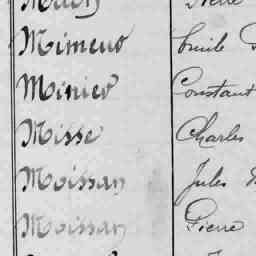 Mimeur Emile
Minier Constant
Misse Charles
Moissan Jules
Moissan Pierre